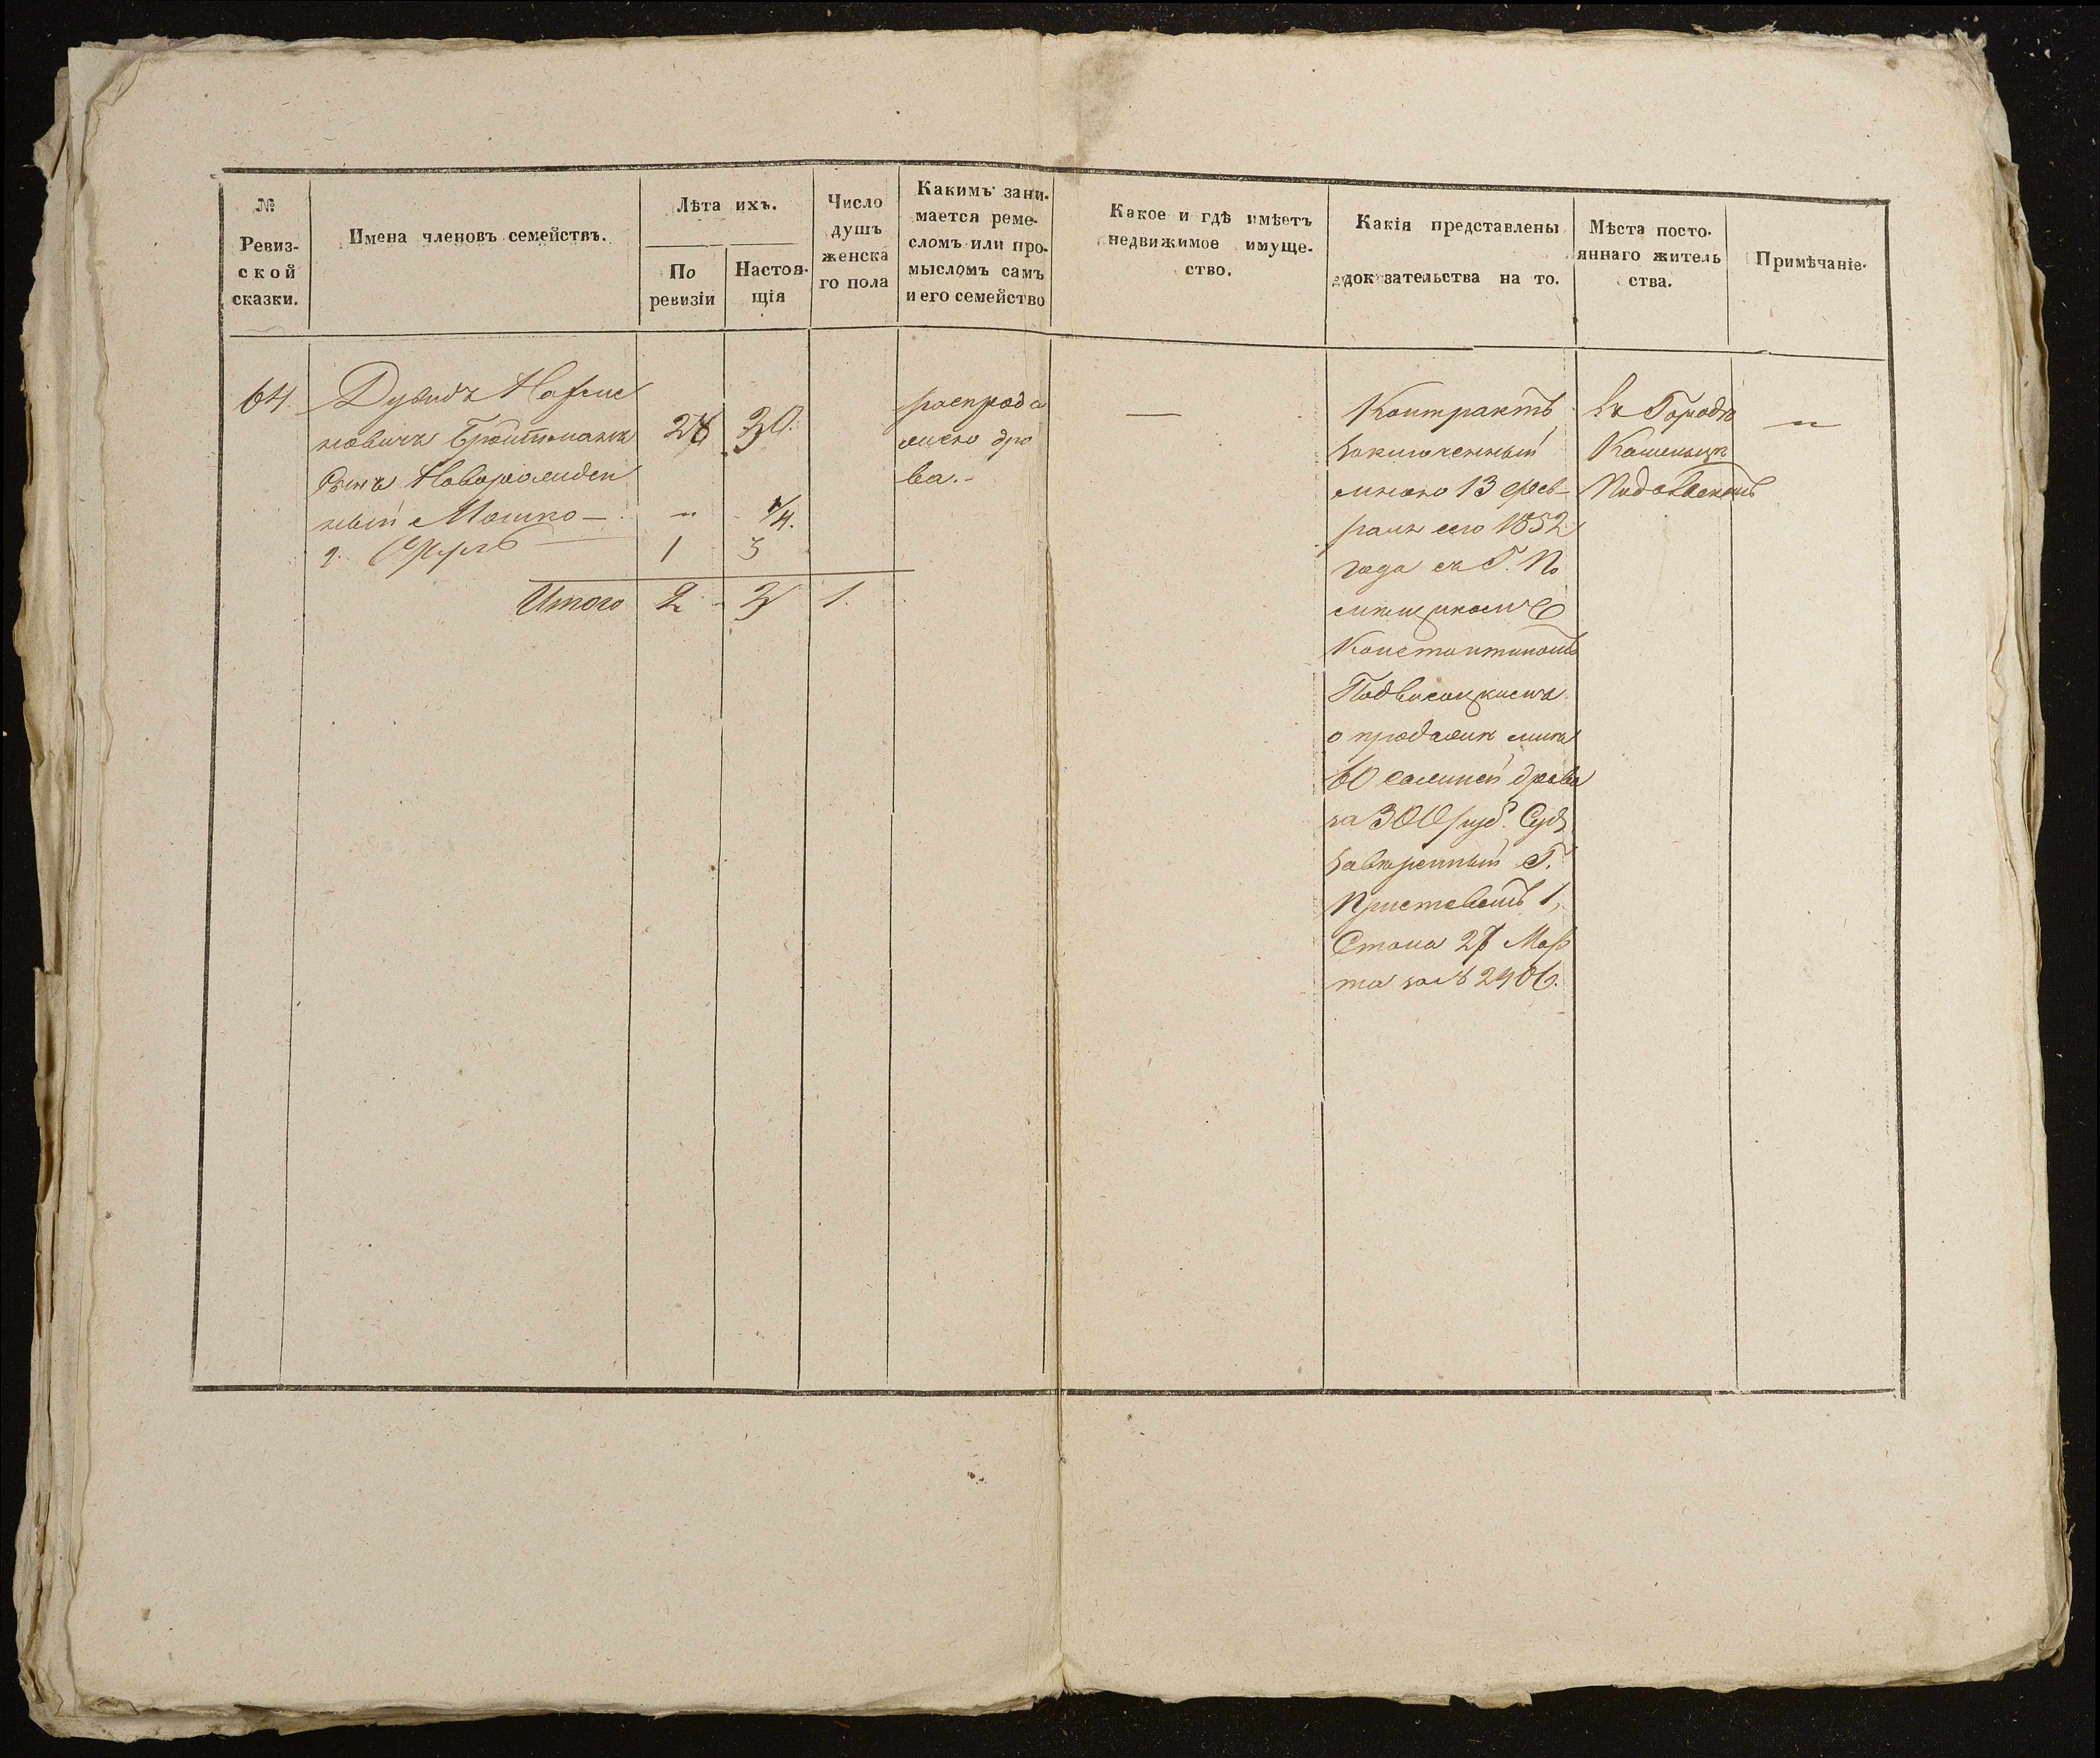 №
Ревиз-
ской
сказки.
Имена членовъ семействъ.
Лѣта ихъ.
По
ревизіи
Настоя-
щія
Число
душъ
женска
го пола
Какимъ зани-
мается реме-
сломъ или про-
мысломъ самъ
и его семейство
Какое и гдѣ имѣетъ
недвижимое имуще-
ство.
Какія представлены
док зательства на то.
Мѣста посто-
яннаго житель
ства.
Примѣчаніе.
64.
Дувидъ
новичъ Бройтманъ
Сынъ Новорожден
ный Мошко — " 1/4.
2. 1 3
28 30.
Итого 2 3 1.
распрода
дро
ва. -
—
Контрактъ
заключенный
13 фев-
раля сего 1852
года съ Г. По
мѣщикомъ
Константиномъ
Подвысоцкимъ
о продажи
60 саженей дровъ
за 300 руб. Сер
завѣренный Г.
Приставомъ 1,
Стана 27 Мар
та за № 2406.
Въ Городѣ
Каменецѣ
Подольскомъ
"